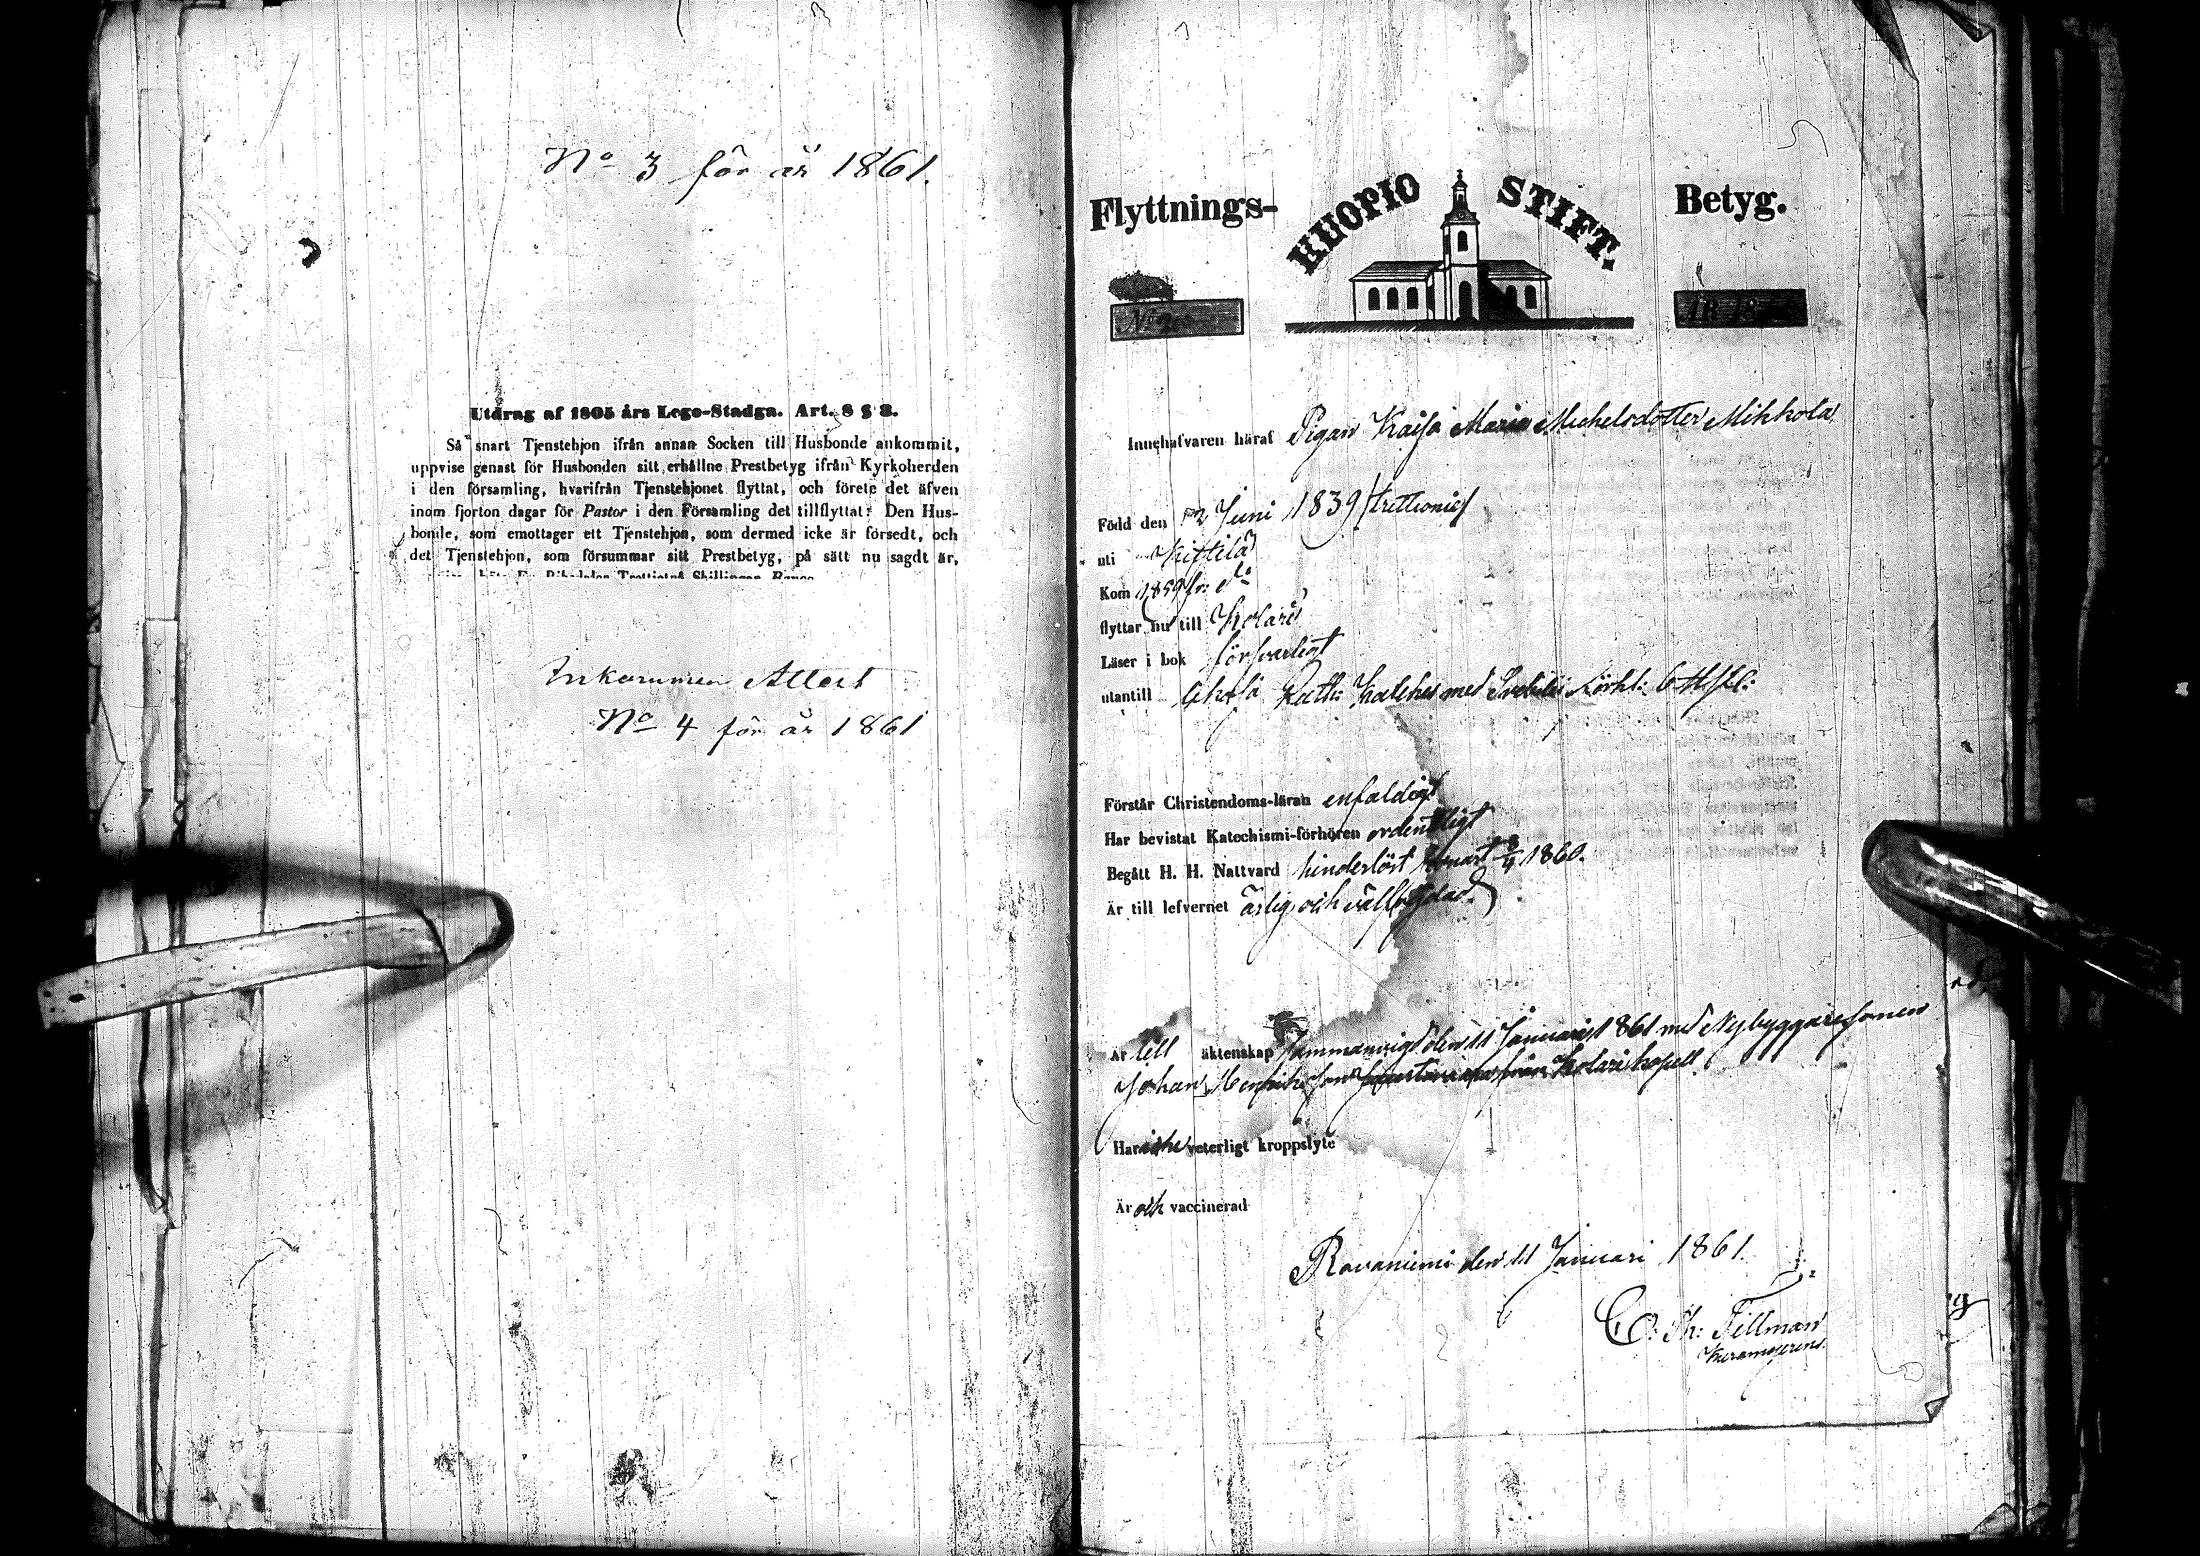 No 3 för år 1861.
Utdrag af 1805 års Lego-Stadga. Art. 8 § 3.
Så snart Tjenstehjon ifrån annan Socken till Husbonde ankommit,
uppvise genast för Husbonden sitt erhållne Prestbetyg ifrån Kyrkoherden
i den församling, hvarifrån Tjenstehjonet flyttat, och förete det äfven
inom fjorton dagar för Pastor i den Församling det tillflyttat: Den Hus-
bonde, som emottager ett Tjenstehjon, som dermed icke är försedt, och
det Tjenstehjon, som försummar sitt Prestbetyg, på sätt nu sagdt är,
Riksdaler Trettiotvå Skillingar Banco
Inkommen Attest
No 4 för år 1861
Flyttnings- KUOPIO STIFT. Betyg.
No
ÅR 18
Innehafvaren häraf Pigan Kaisa Maria Michelsdotter Mikkola
Född den Juni 1839 /trettionio/
uti Kittilä
Kom 1859 fr.
flyttar nu till Kolari
Läser i bok försvarligt
utantill
Förstår Christendoms-läran enfaldigt
Har bevistat Katechismi-förhören ordentligt
Begått H. H. Nattvard hinderlöst senast 1860.
Är till lefvernet ärlig och välfrägdad.
Är till äktenskap sammanvigd den 11 Januari 1861 med Nybyggaresonen
Johan Henriksson från Kolari kapell
Har icke veterligt kroppslyte
Är och vaccinerad
Rovaniemi den 11 Januari 1861.
C. Th: Tillman